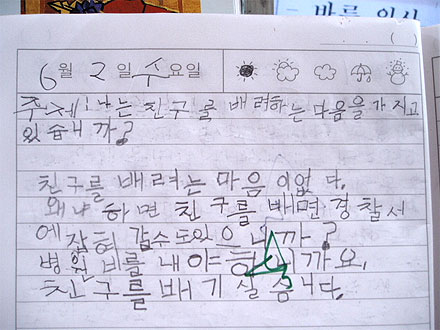 6월 2일 수요일
주제: 나는 친구를 배려하는 마음을 가지고
있습니까?
친구를 배려는 마음 이없다.
왜냐 하면 친구를 배면 경찰서
에 잡혀 갈수도있으니까?
병원 비를 내야 하니까요.
친구를 배기 실슴니다.